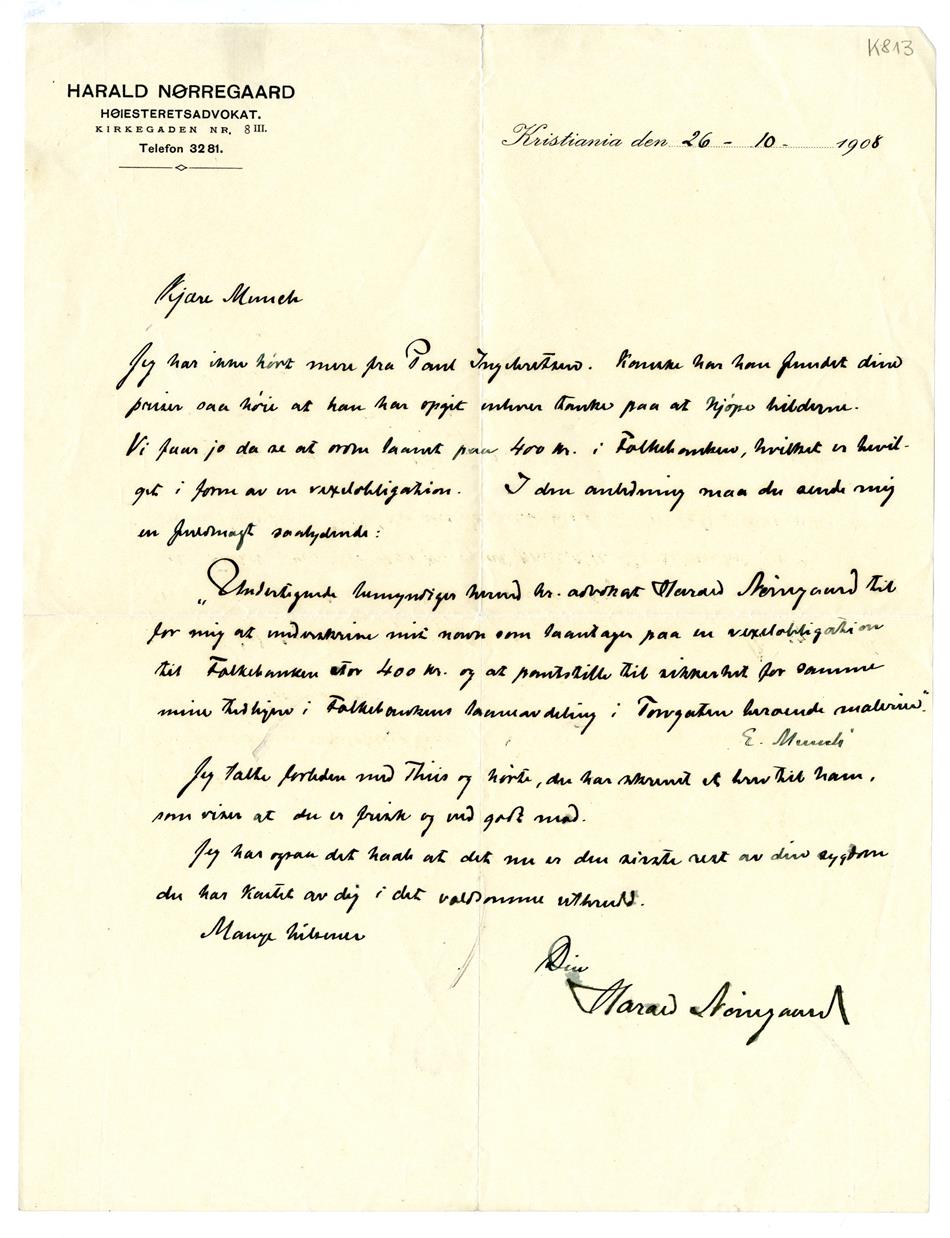 K813
HARALD NØRREGAARD
HØIESTERETSADVOKAT.
KIRKEGADEN NR. 8 III.
Telefon 3281.
Kristiania den 26 - 10 - 1908
Kjære Munch
Jeg har ikke hørt mere fra Paul Ingebretsen. Kanske har han fundet dine
priser saa høie at han har opgit enhver tanke paa at kjøpe bilderne.
Vi faar jo da se at ordne laanet paa 400 kr. i Folkebanken, hvilket er bevil-
get i form av en vexelobligation. I den anledning maa du sende mig
en fuldmagt saalydende:
„Undertegnede bemyndiger herved hr. advokat Harald Nørregaard til
for mig at underskrive mit navn som laantager paa en vexelobligation
til Folkebanken stor 400 kr. og at pantstille til sikkerhet for samme
mine tidligere i Folkebankens laaneavdeling i Torvgaten beroende malerier."
E. Munch
Jeg talte forleden med Thiis og hørte, du har skrevet et brev til ham,
som viser at du er frisk og ved godt mod.
Jeg har ogsaa det haab at det nu er den sidste rest av din sygdom
du har kastet av dig i det voldsomme utbrudd.
Mange hilsener
Din
Harald Nørregaard